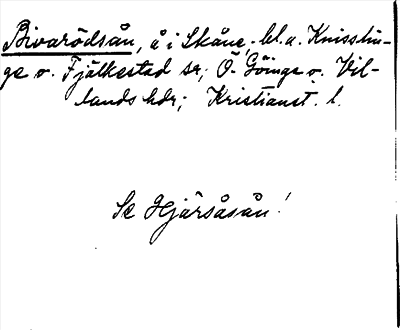 Bivarödsån, å i Skåne, bl.a. Knisslin-
ge o. Fjälkestad sr; Ö. Göinge o. Vil-
lands hdr; Kristianst. l.
Se Hjärsåsån!